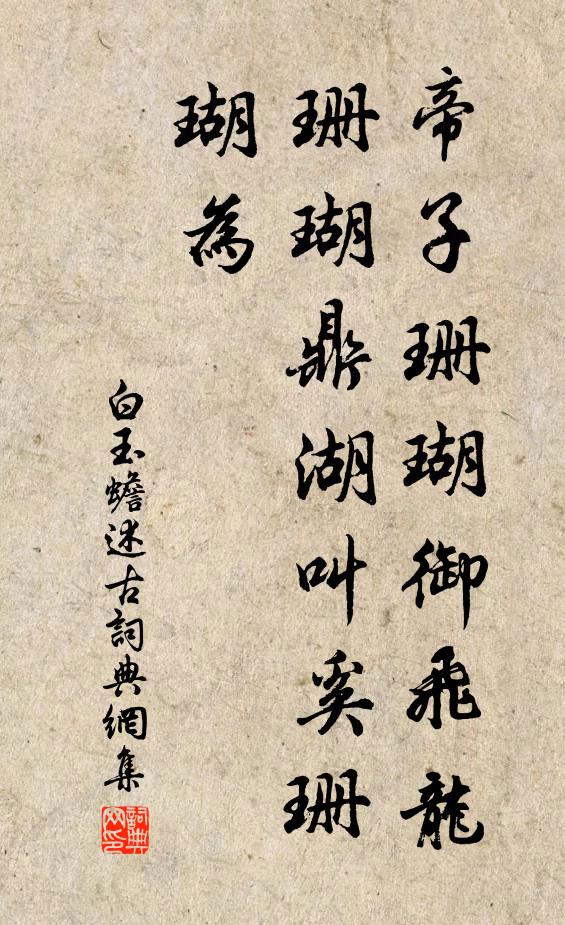 帝子珊瑚御飛龍
珊瑚鼎湖叫奚珊
瑚為
白玉蟾述古詞典網集
詞典網印